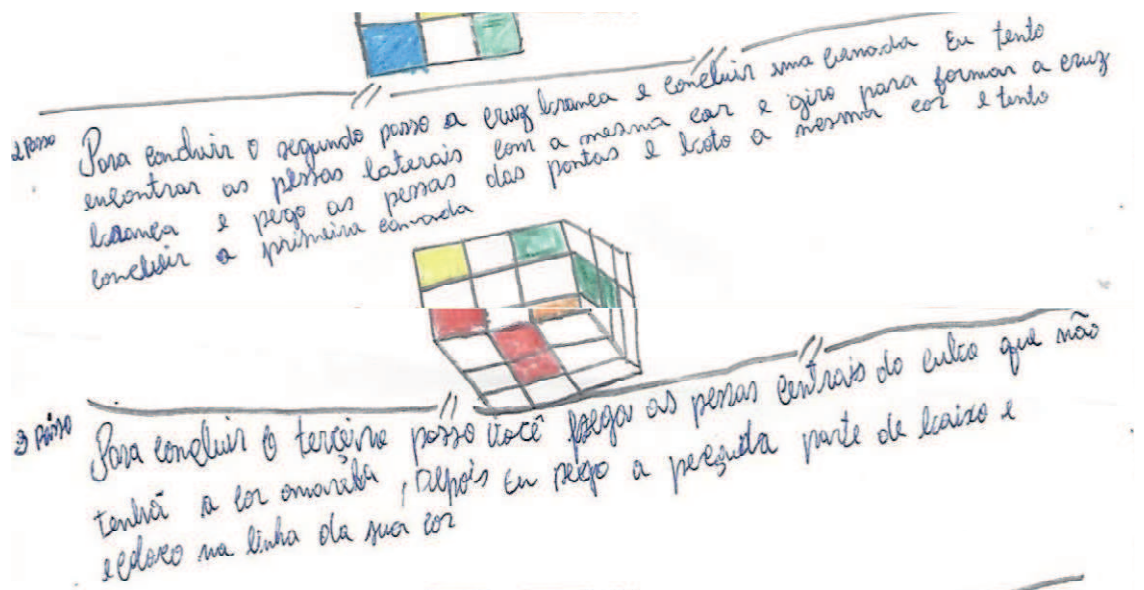 2 Passo
Para concluir o segundo passo a cruz branca e concluir uma camada Eu tento
encontrar as pessas laterais com a mesma cor e giro para formar a cruz
branca e pego as pessas das pontas e boto a mesma cor e tento
concluir a primeira camada
3 Passo
Para concluir o terceiro passo você pega as pessas centrais do cubo que não
tenha a cor amarela, Depois eu pego a parte de baixo e
coloco na linha da sua cor